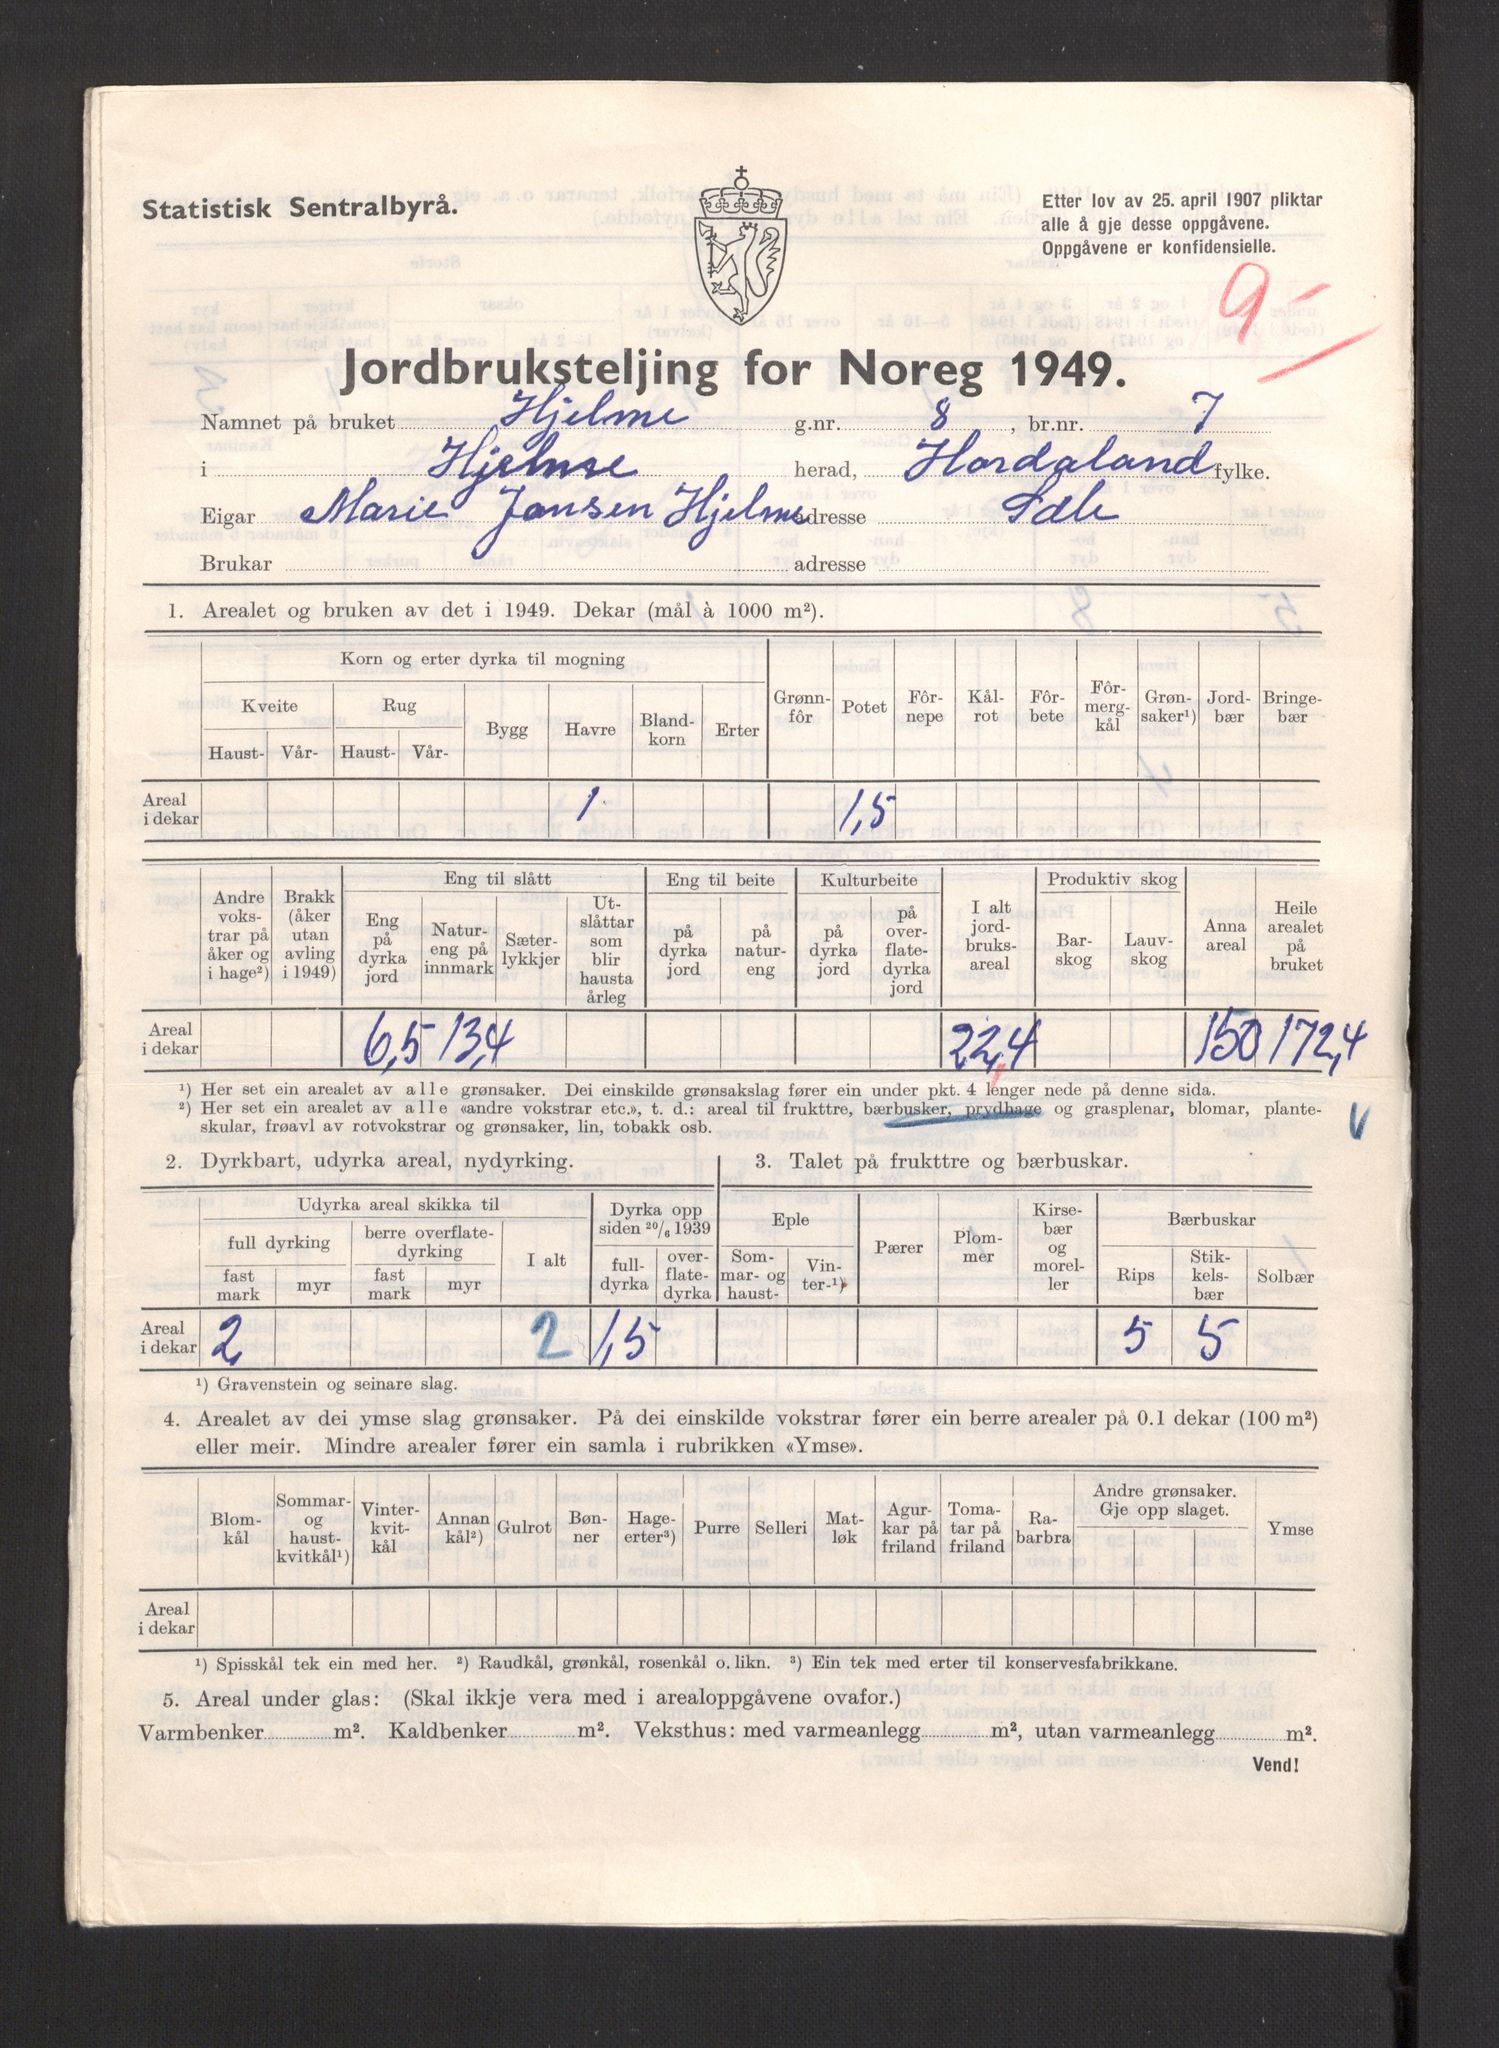 Statistisk Sentralbyrå.
Etter lov av 25. april 1907 pliktar
alle å gje desse oppgåvene.
Oppgåvene er konfidensielle.
9
Jordbruksteljing for Noreg 1949.
Namnet på bruket Hjelme g.nr. 8, br.nr. 7
i Hjelme herad, Hordaland fylke.
Eigar Marie Jansen Hjelme adresse Sæle
Brukar adresse
1. Arealet og bruken av det i 1949. Dekar (mål à 1000 m²).
Korn og erter dyrka til mogning
Kveite Rug Bygg Havre Bland-korn Erter Grønn-fôr Potet Fôr-nepe Kål-rot Fôr-bete Fôr-mergkål Grøn-saker¹) Jord-bær Bringe-bær
Haust- Vår- Haust- Vår-
Areal i dekar 1 1,5
Andre voks-trar på åker og i hage²) Brakk (åker utan avling i 1949) Eng til slått Eng til beite Kulturbeite I alt jord-bruks-areal Produktiv skog Anna areal Heile arealet på bruket
Eng på dyrka jord Natur-eng på innmark Sæter-lykkjer Ut-slåttar som blir hausta årleg på dyrka jord på natur-eng på dyrka jord på over-flate-dyrka jord Bar-skog Lauv-skog
Areal i dekar 6,5 13,4 22,4 150 172,4
¹) Her set ein arealet av alle grønsaker. Dei einskilde grønsakslag fører ein under pkt. 4 lenger nede på denne sida.
²) Her set ein arealet av alle «andre vokstrar etc.», t. d.: areal til frukttre, bærbusker, prydhage og grasplenar, blomar, plante-
skular, frøavl av rotvokstrar og grønsaker, lin, tobakk osb.
2. Dyrkbart, udyrka areal, nydyrking.
3. Talet på frukttre og bærbuskar.
Udyrka areal skikka til Dyrka opp siden 20/6 1939 Eple Pærer Plom-mer Kirse-bær og morel-ler Bærbuskar
full dyrking berre overflate-dyrking I alt full-dyrka over-flate-dyrka Som-mar- og haust- Vin-ter-¹) Rips Stik-kels-bær Solbær
fast mark myr fast mark myr
Areal i dekar 2 2 1,5 5 5
¹) Gravenstein og seinare slag.
4. Arealet av dei ymse slag grønsaker. På dei einskilde vokstrar fører ein berre arealer på 0.1 dekar (100 m²)
eller meir. Mindre arealer fører ein samla i rubrikken «Ymse».
Blom-kål Sommar- og haust-kvitkål¹) Vinter-kvit-kål Annan kål²) Gulrot Bøn-ner Hage-erter³) Purre Selleri Mat-løk Agur-kar på friland Toma-tar på friland Ra-barbra Andre grønsaker. Gje opp slaget. Ymse
Areal i dekar
¹) Spisskål tek ein med her. ²) Raudkål, grønkål, rosenkål o. likn. ³) Ein tek med erter til konservesfabrikkane.
5. Areal under glas: (Skal ikkje vera med i arealoppgåvene ovafor.)
Varmbenker m². Kaldbenker m². Veksthus: med varmeanlegg m², utan varmeanlegg m².
Vend!